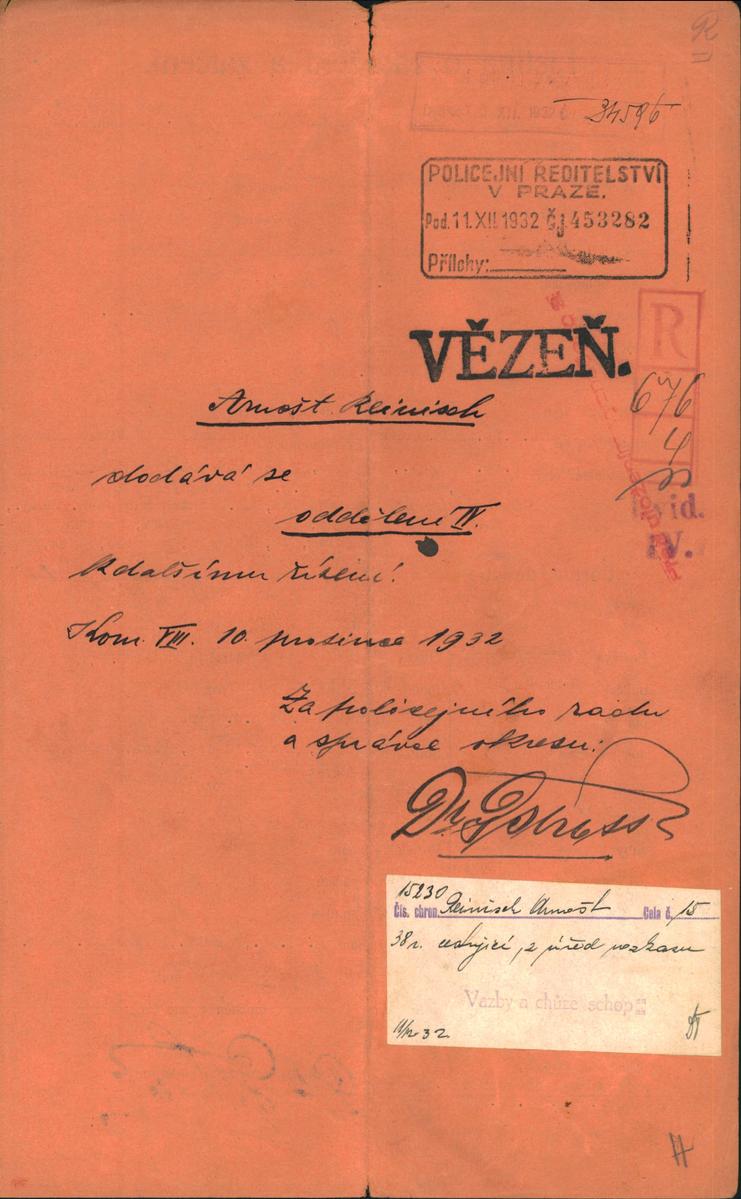 R
34596
POLICEJNÍ ŘEDITELSTVÍ
V PRAZE.
Pod. 11.XII.1932 Čj. 453282
Přílohy:
VĚZEŇ.
R
676
4
Arnošt Reinisch
dodává se
oddělení IV.
k dalšímu řízení.
Evid.
IV.
Kom. VIII. 10. prosince 1932
Za policejního radu
a správce okresu:
Dr
15230
Čís. chron. Reinisch Arnošt Cela č. 15
38 r. z úřed
Vazby a chůze schop
11/12 32